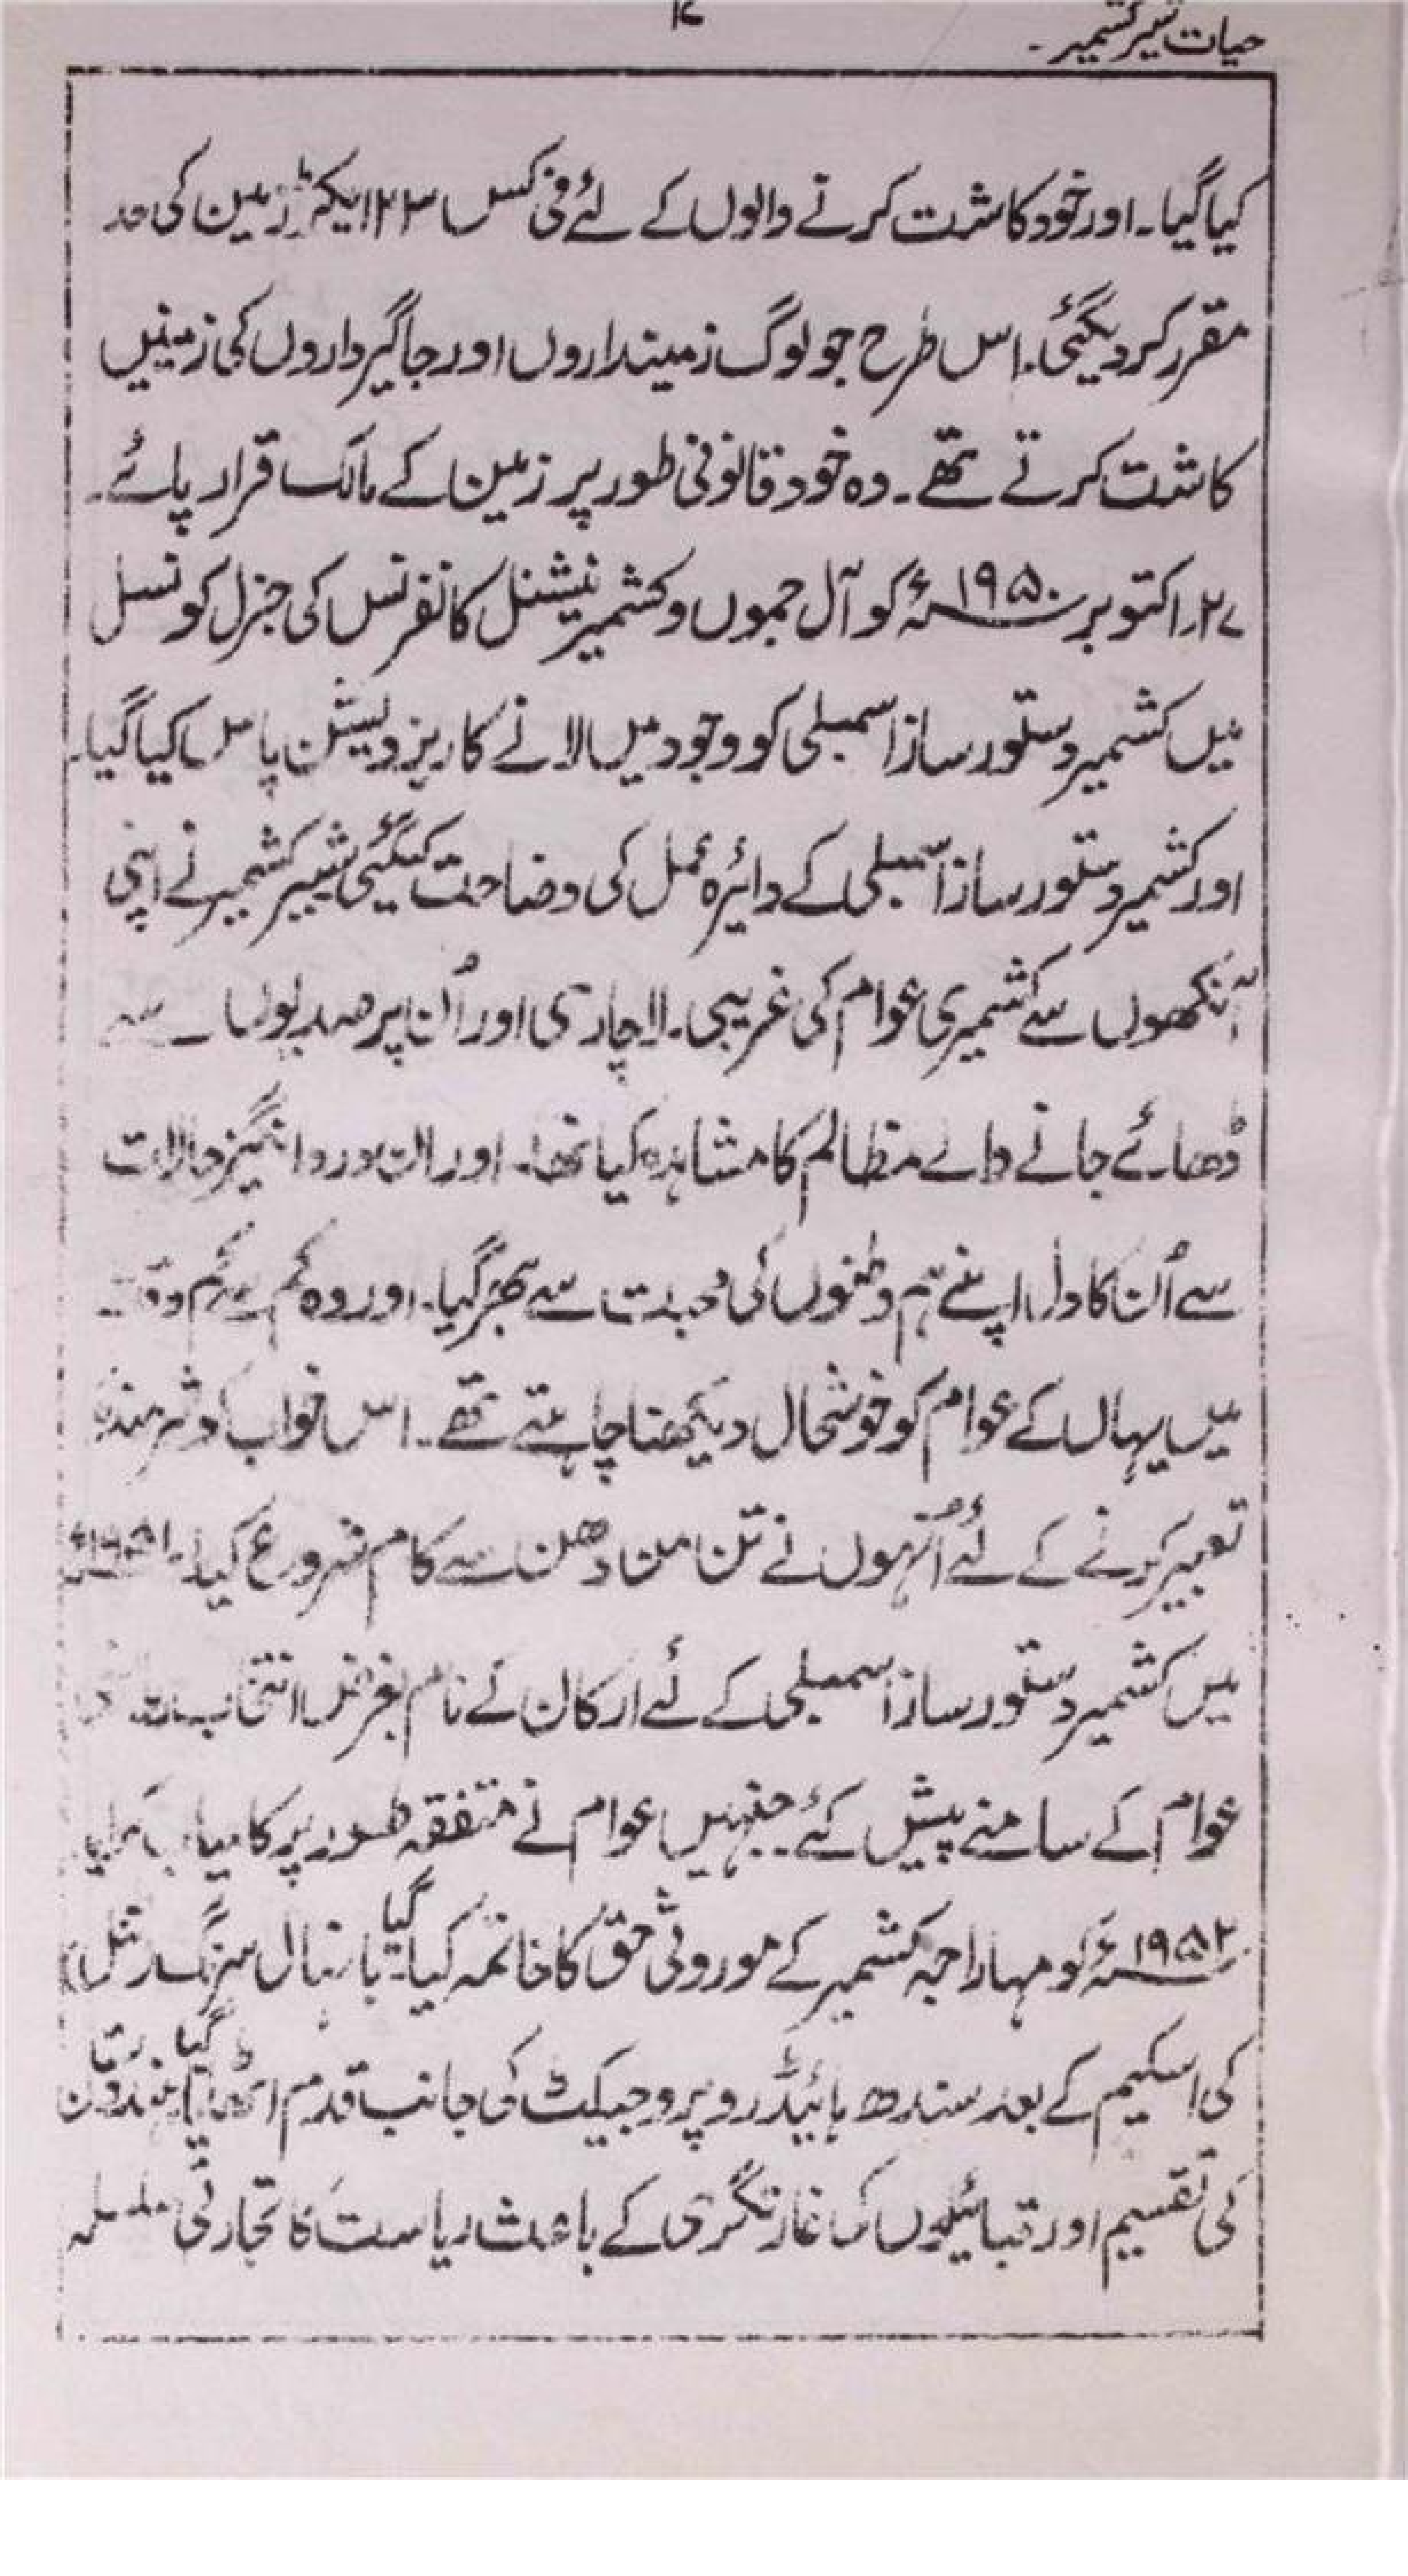 حیات شیر کشمیر۔
کیا گیا۔ اور خود کاشت کرنے والوں کے لئے فی کس ۲۳ ایکڑ زمین کی حد
مقرر کر دیگئی۔ اس طرح جو لوگ زمینداروں اور جاگیرداروں کی زمینیں
کاشت کرتے تھے۔ وہ خود قانونی طور پر زمین کے مالک قرار پائے۔
۲۷؍ اکتوبر ۱۹۵۰ء کو آل جموں و کشمیر نیشنل کانفرنس کی جنرل کونسل
میں کشمیر دستور ساز اسمبلی کو وجود میں لانے کا ریزولیشن پاس کیا گیا۔
اور کشمیر دستور ساز اسمبلی کے دائرہ عمل کی وضاحت کیگئی شیر کشمیر نے اپنی
آنکھوں سے کشمیری عوام کی غریبی۔ لاچاری اور اُن پر صدیوں سے
ڈھائے جانے والے مظالم کا مشاہدہ کیا تھا۔ اور ان درد انگیز حالات
سے اُن کا دل اپنے ہم وطنوں کی محبت سے بھر گیا۔ اور وہ کم سے کم وقت
میں یہاں کے عوام کو خوشحال دیکھنا چاہتے تھے۔ اس خواب کو شرمندہ
تعبیر کرنے کے لئے اُنہوں نے تن من دھن سے کام شروع کیا۔ ۱۹۵۱ء
میں کشمیر دستور ساز اسمبلی کے لئے ارکان کے نام بغرض انتخابات
عوام کے سامنے پیش کئے۔ جنہیں عوام نے متفقہ طور پر کامیاب
۱۹۵۲ء کو مہاراجہ کشمیر کے موروثی حق کا خاتمہ کیا گیا۔ بانہال سرنگ (ٹنل)
کی اسکیم کے بعد سندھ ہائیڈرو پروجیکٹ کی جانب قدم اٹھایا گیا۔ ہندوستان
کی تقسیم اور قبائیلیوں کی غارتگری کے باعث ریاست کا تجارتی سلسلہ